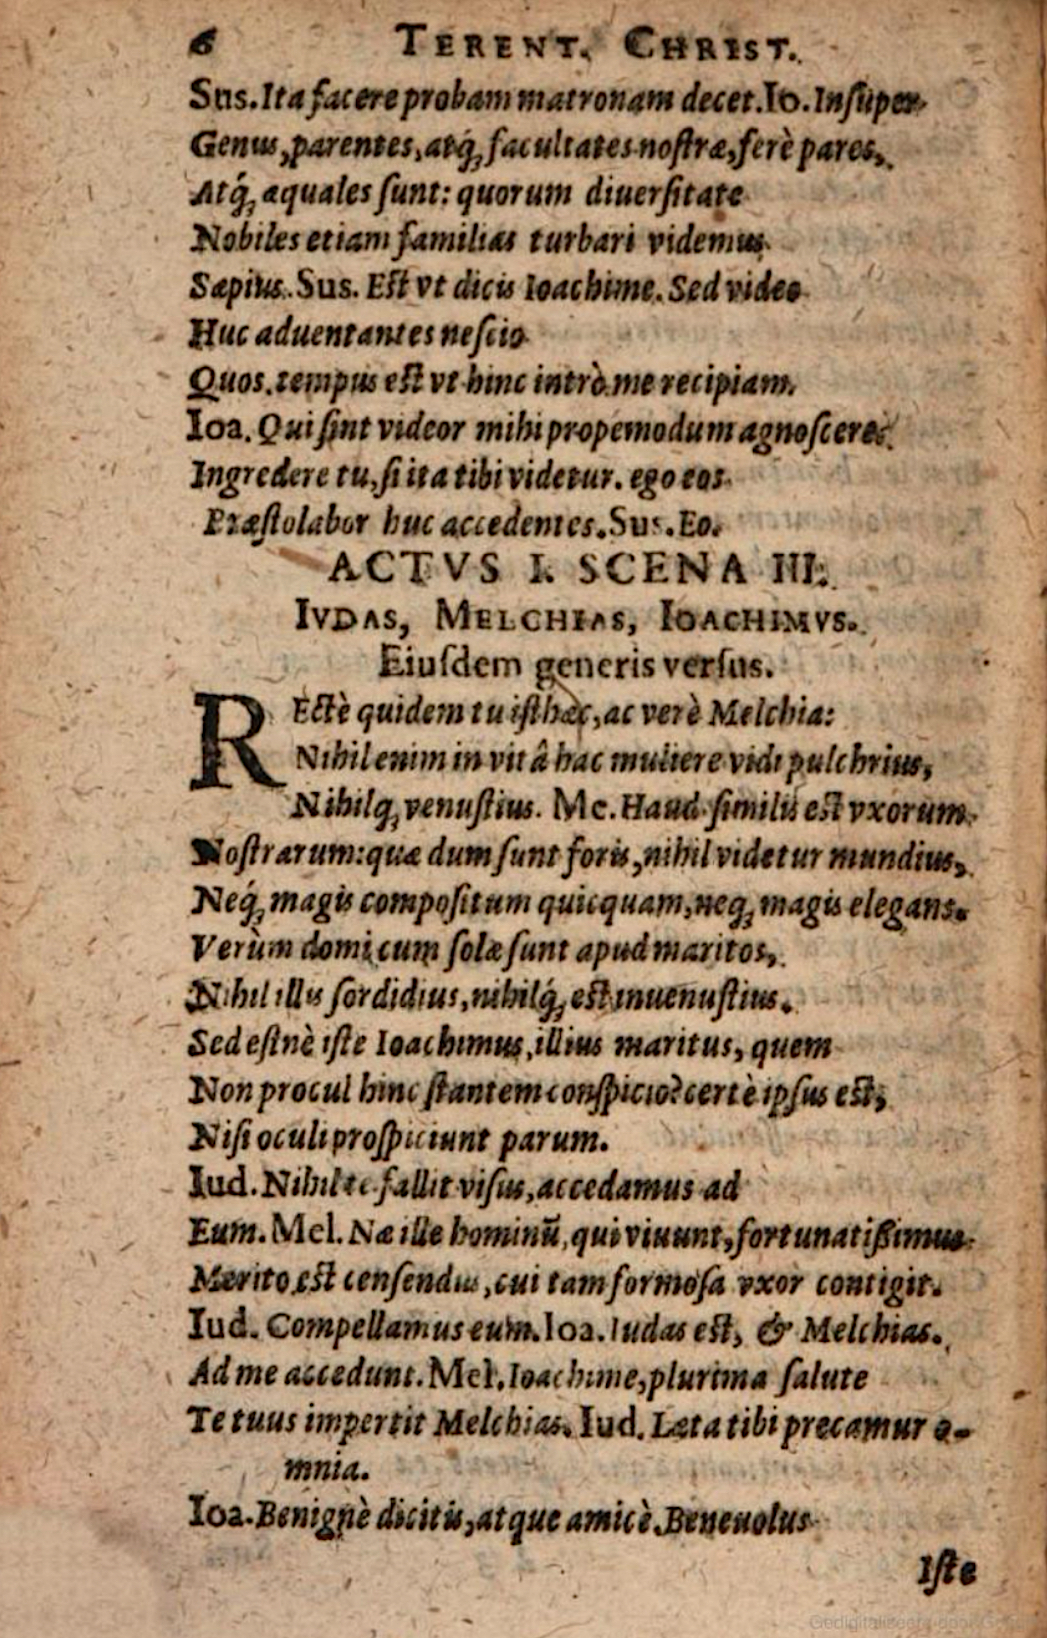 6 TERENT. CHRIST.
Sus. Ita facere probam matronam decet. Io. Insuper
Genus, parentes, atq́; facultates nostræ, ferè pares,
Atq́; æquales sunt: quorum diuersitate
Nobiles etiam familias turbari videmus
Sæpius. Sus. Est vt dicis Ioachime. Sed video
Huc aduentantes nescio
Quos. tempus est vt hinc intrò me recipiam.
Ioa. Qui sint videor mihi propemodum agnoscere.
Ingredere tu, si ita tibi videtur. ego eos
Præstolabor huc accedentes. Sus. Eo.
ACTVS I. SCENA III.
IVDAS, MELCHIAS, IOACHIMVS.
Eiusdem generis versus.
REctè quidem tu isthæc, ac verè Melchia:
Nihil enim in vitâ hac muliere vidi pulchrius,
Nihilq; venustius. Me. Haud similis est vxorum
Nostrarum: quæ dum sunt foris, nihil videtur mundius,
Neq́; magis compositum quicquam, neq; magis elegans.
Verùm domi cum solæ sunt apud maritos,
Nihil illis sordidius, nihilq́; est inuenustius.
Sed estnè iste Ioachimus, illius maritus, quem
Non procul hinc stantem conspicio? certè ipsus est,
Nisi oculi prospiciunt parum.
Iud. Nihil te fallit visus, accedamus ad
Eum. Mel. Næ ille hominū, qui viuunt, fortunatissimus
Merito est censendus, cui tam formosa vxor contigit.
Iud. Compellamus eum. Ioa. Iudas est, & Melchias.
Ad me accedunt. Mel. Ioachime, plurima salute
Te tuus impertit Melchias. Iud. Læta tibi precamur o-
mnia.
Ioa. Benignè dicitis, atque amicè. Beneuolus
Iste
Gedigitaliseerd door